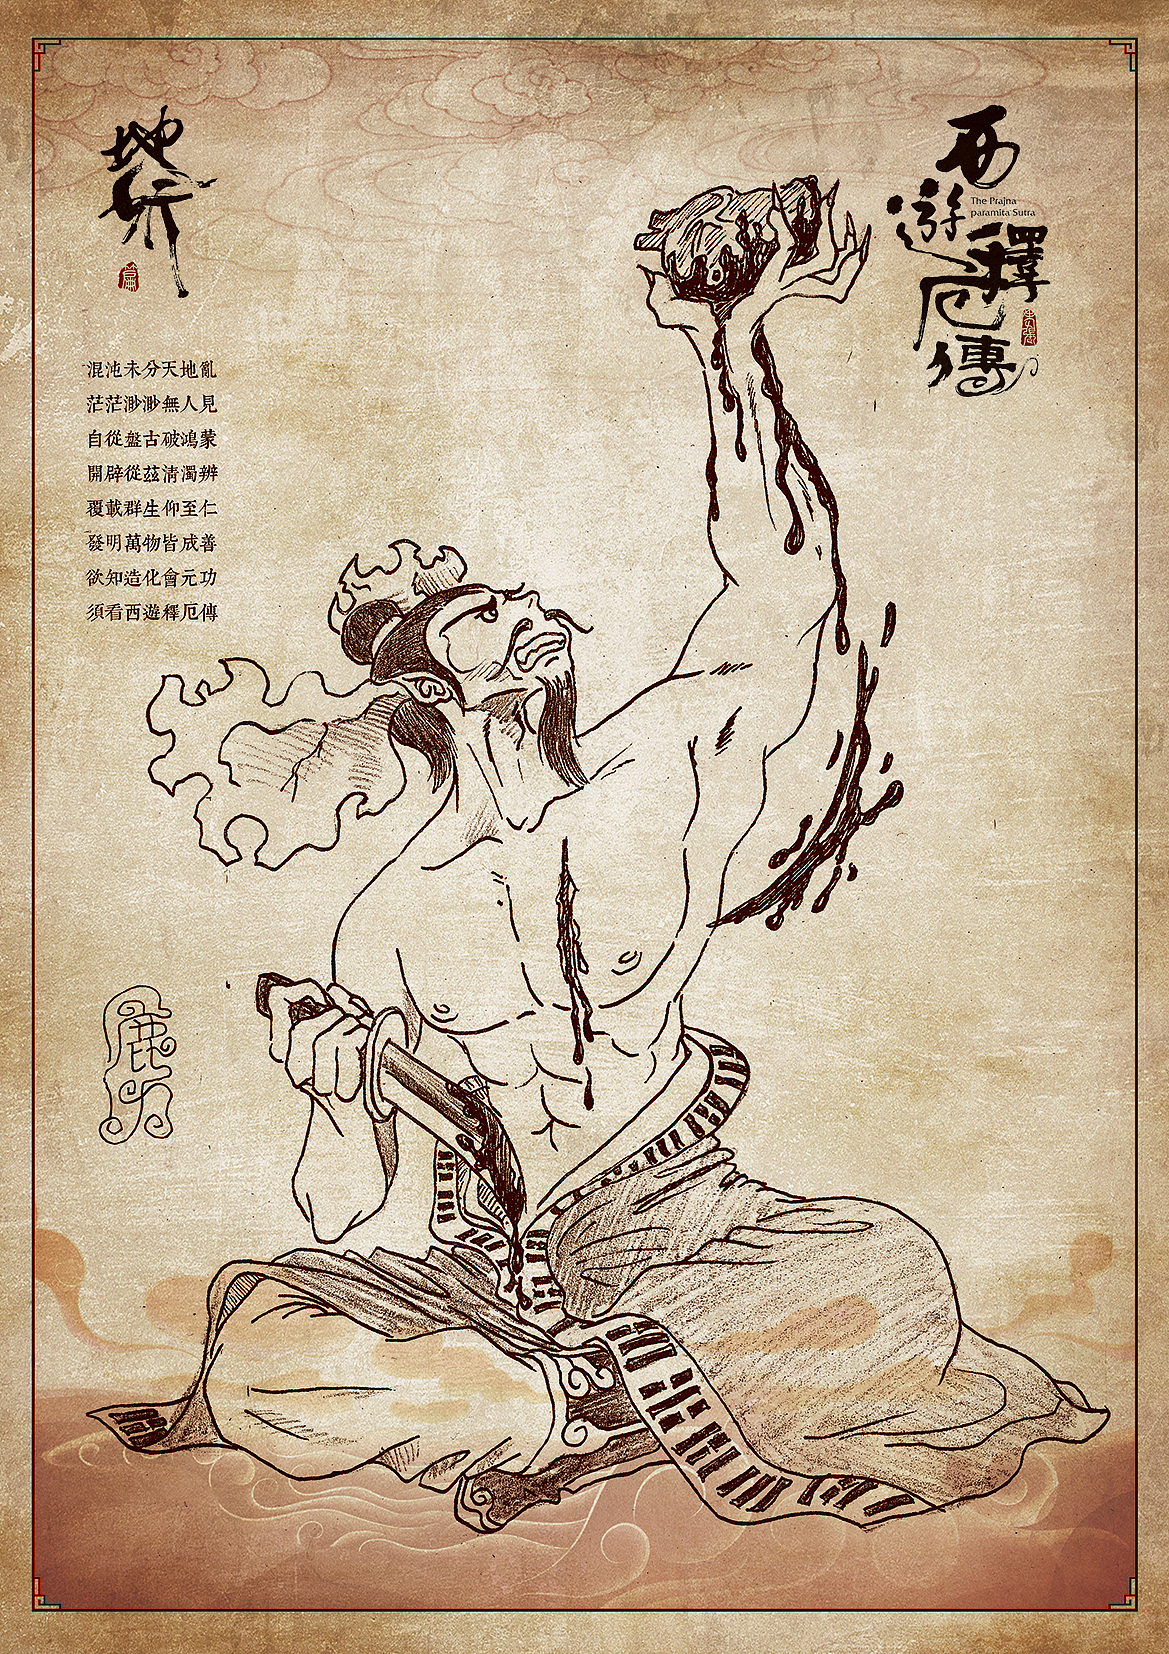 西遊釋厄傳
The Prajna
paramita Sutra
混沌未分天地亂
茫茫渺渺無人見
自從盤古破鴻蒙
開辟從茲清濁辨
覆載群生仰至仁
發明萬物皆成善
欲知造化會元功
須看西遊釋厄傳
鹿力